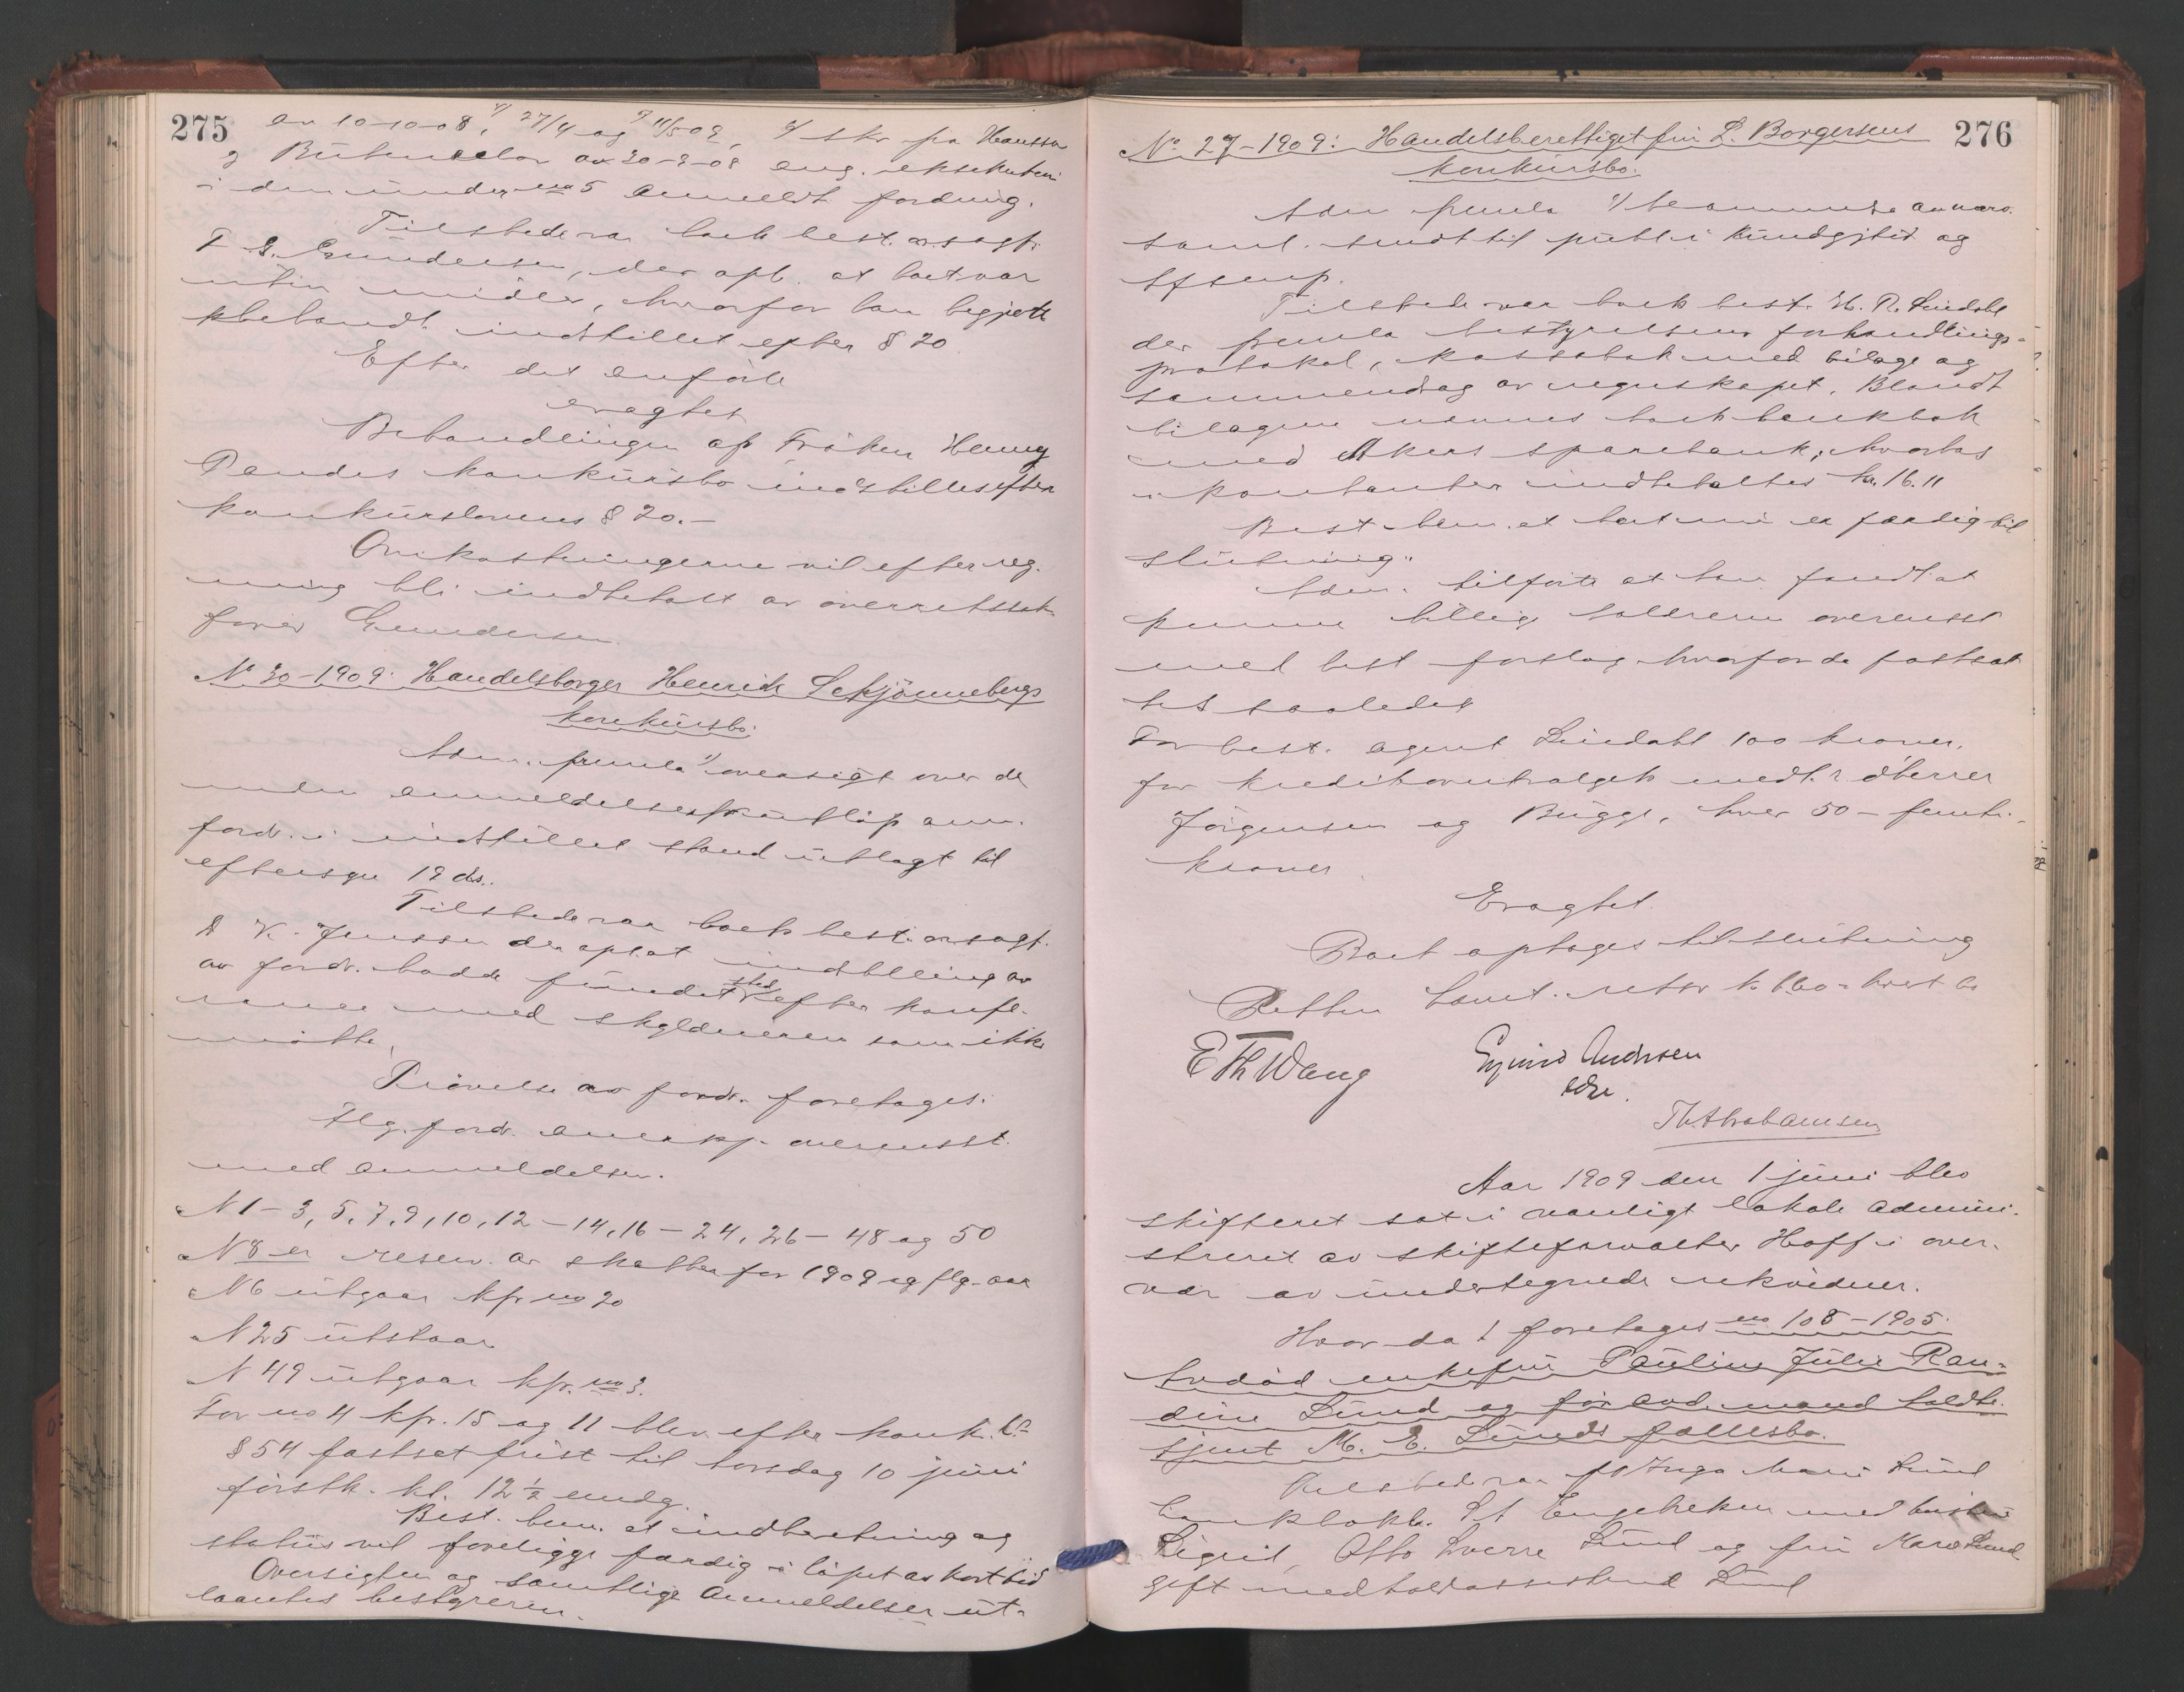 275
av 10-10-08, 27/4 og 11/5 09, skr fra Hansson
av 30-9-08 ang.
i den under no 5 anmeldt fordring.
Tilstede var boets best. o.r.sagf.
Gundersen, der opl. at boet var
uten midler, hvorfor han begjærte
behandl. indstillet efter § 20
Efter det anførte
eragtes
Behandlingen af Frøken Henny
konkursbo indstilles efter
konkurslovens § 20.-
Omkostningerne vil efter reg-
ning bli indbetalt av overretssak-
fører Gundersen.
No 30-1909: Handelsborger Henrich Schjønnebergs
konkursbo.
Adm. freml. 1) oversigt over de
inden anmeldelsesfr. utløp anm.
fordr. i indstillet stand utlagt til
eftersyn 19 ds..
Tilstede var boets best. o.r.sagf.
K. Jenssen der oplat indstilling av
av fordr. hadde fundet sted efter konfe-
rance med skyldneren som ikke
møtte.
Prøvelse av fordr. foretages.
Flg. fordr. anerkj. overensst.
med anmeldelsen.
N 1-3, 5, 7, 9, 10, 12-14, 16-24, 26-48 og 50
N 8 er reserv. av skatter for 1909 og flg. aar
N 6 utgaar kfr no 20
N 25 utstaar
N 49 utgaar kfr. no 3.
For no 4 kfr. 15 og 11 blev efter konk. l.
§ 54 fastsat frist til torsdag 10 juni
førstk. kl. 12 ½ emdg.
Best. bem. at indberetning og
status vil foreligge færdig i løpet av kort tid
Oversigten og samtlige anmeldelser ut-
laantes bestyreren.
276
No 27-1909: Handelsberettiget fru L. Borgersens
konkursbo.
Adm fremla 1)
saml. sendt til publ. i kundgjtid og

Tilstede var boets best. H. R. Lindahl
der fremla bestyrelsens forhandlings-
protokol, kassabok med bilage og
sammendrag av regnskapet. Blandt
bilagene nævnes boets bankbok
med Akers sparebank, hvorhos
i kontanter indbetaltes kr. 16.11
Best. bem. at boet nu er færdig til
slutning.
Adm. tilførte at han fandt at
kunne billige salærerne overensst
med best forslag hvorfor de fastsat
tes saaledes
For best. agent Lindahl 100 kroner,
for kreditorutvalgets medl. d'herrer
Jørgensen og Bugge, hver 50 - femti-
kroner.
Eragtet.
Boet optages til slutning
Retten hævet.
E Th Wang
Eyvind Andersen
edsv.
Th. Abrahamsen
Aar 1909 den 1 juni blev
skifteret sat i vanligt lokale admini-
streret av skifteforvalter Hoff i over-
vær av undertegnede rekvidner.
Hvor da 1 foretages no 108-1905.
Avdød enkefru Pauline Julie Ran-
dine Lund og før avd. mand toldbe-
tjent M. E. Lunds fællesbo.
Tilstede var Inga Marie Lund
Engebretsen med hustru
Sigrid, Otto Sverre Lund og fru Marie Lund
gift med toldassistent Lund